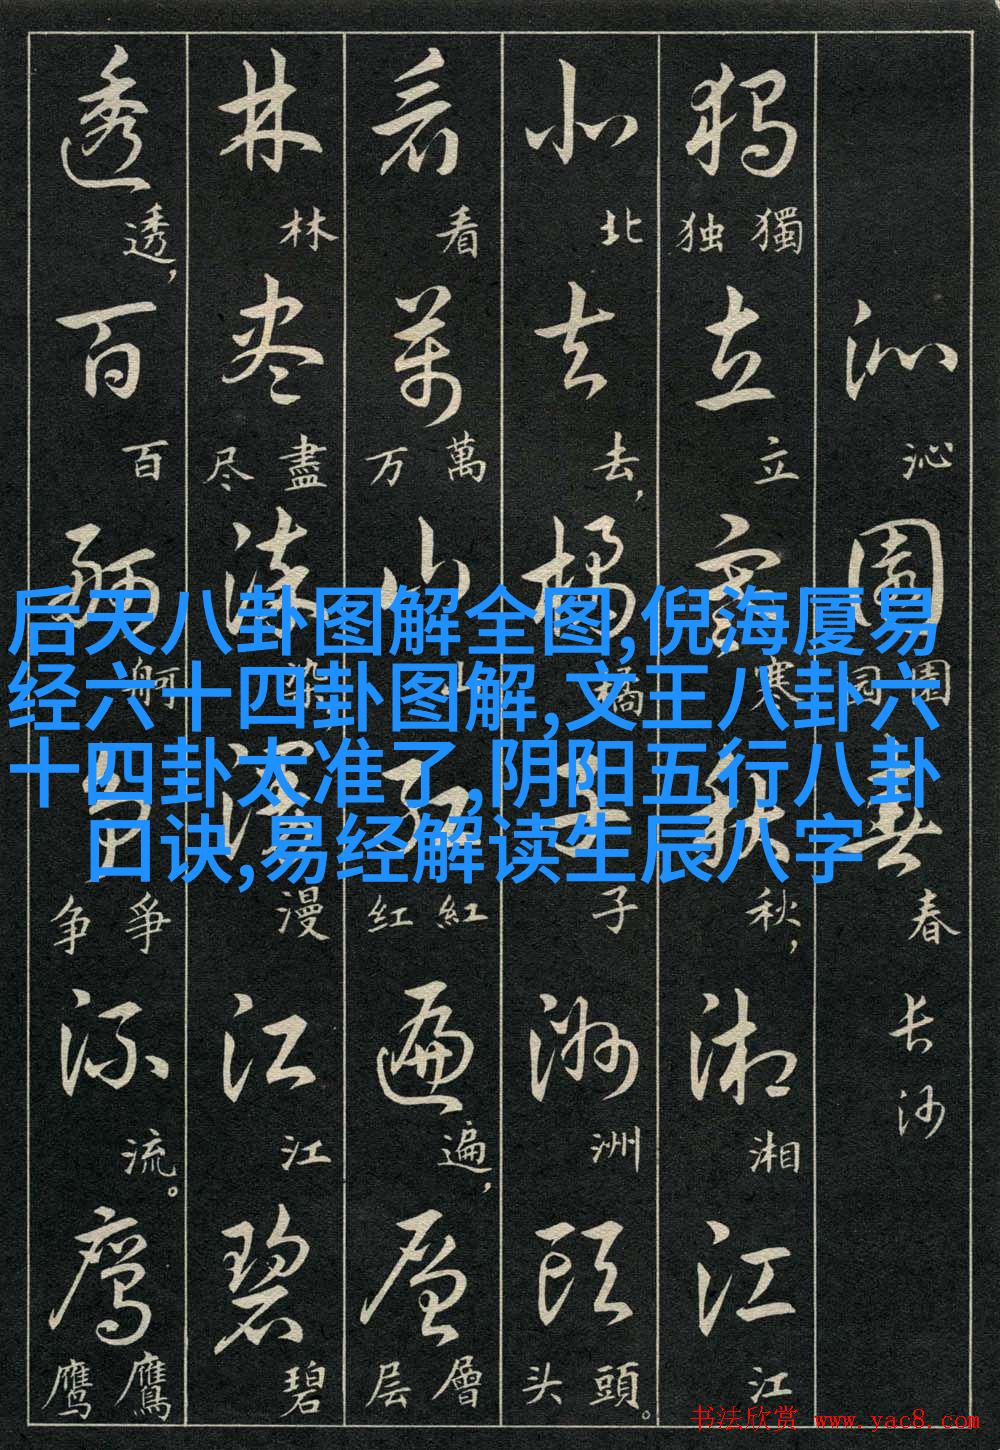 后天八卦图解全图,倪海厦易
经六十四卦图解,文王八卦六
十四卦太准了,阴阳五行八卦
口诀,易经解读生辰八字
沁园春
沁 園园 春 长沙
独立寒秋湘江
獨独 立 寒 秋， 湘 江
北去橘子洲头
北 去， 橘 子 洲 頭头。
看万山红遍层
看 萬万 山 紅红 遍， 層层
林尽染漫江碧
林 盡尽 染， 漫 江 碧
透百舸争流鹰
透， 百 舸 爭争 流。 鷹鹰
书法欣赏 www.yac8.com